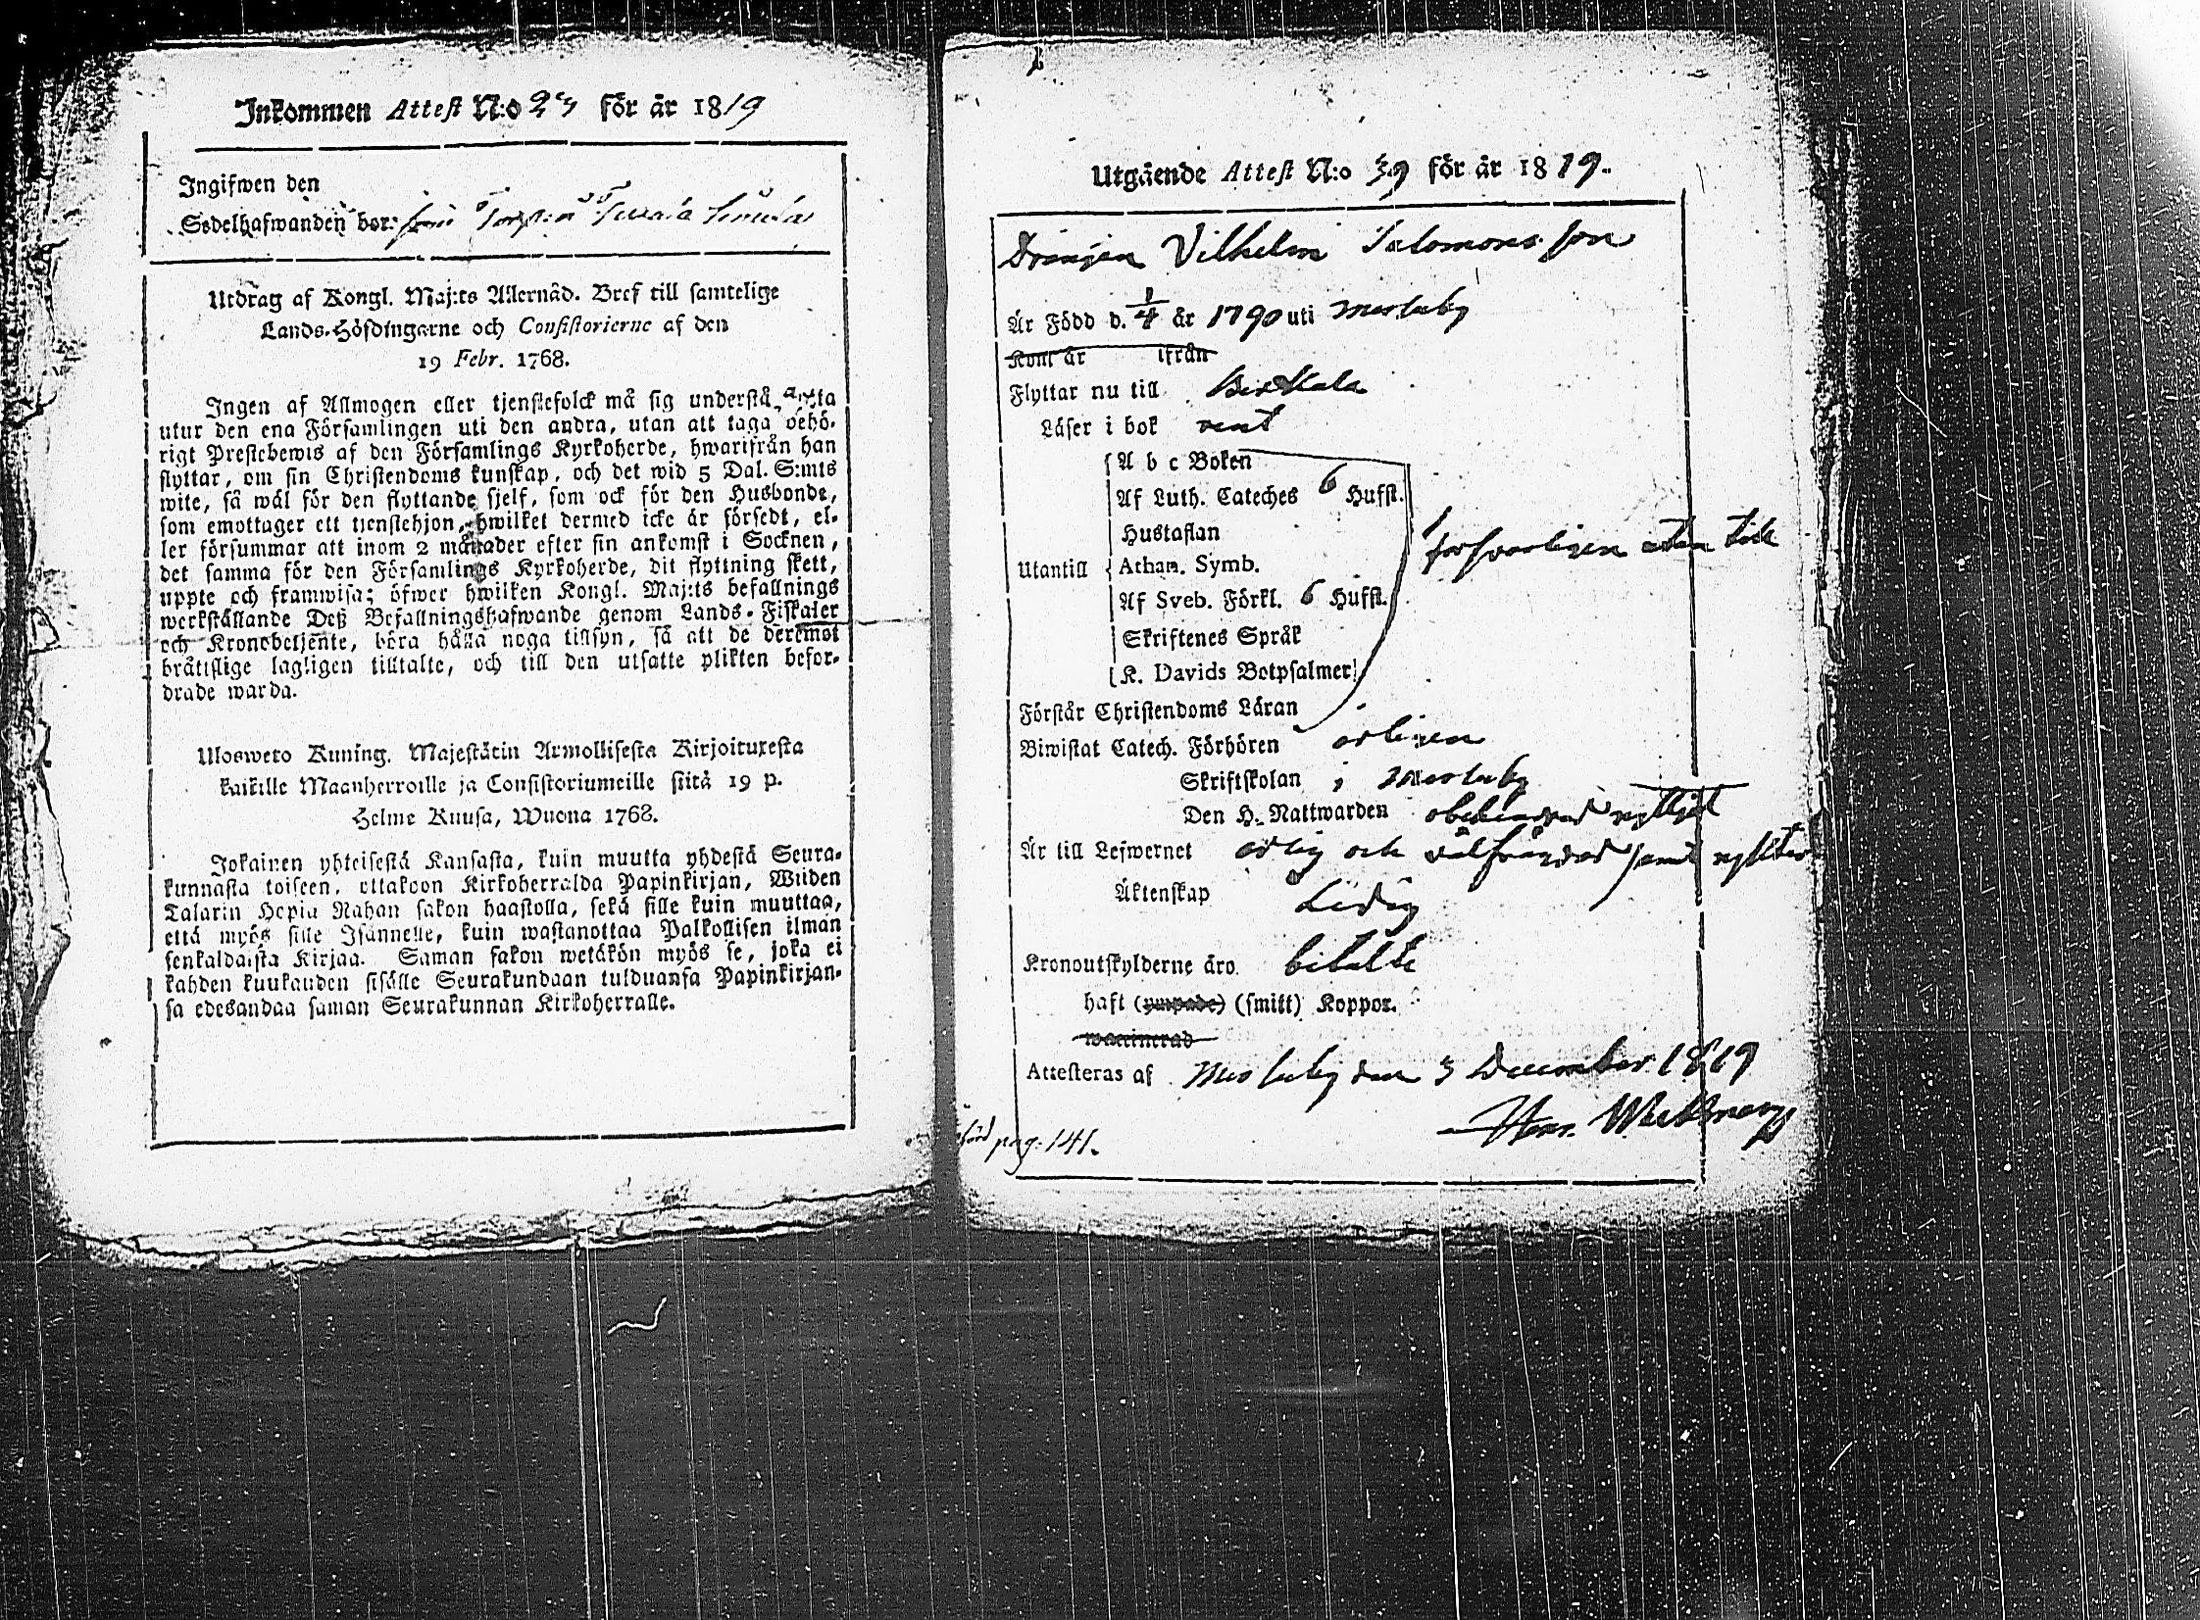 Inkommen Attest N:o 23 för år 1819
Ingifwen den
Sedelhafwanden bor:
Utdrag af Kongl. Maj:ts Allernåd. Bref till samtelige
Lands-Höfdingarne och Consistorierne af den
19 Febr. 1768.
Ingen af Allmogen eller tjenstefolck må sig understå
utur den ena Församlingen uti den andra, utan att taga behö-
rigt Prestebewis af den Församlings Kyrkoherde, hwarifrån han
flyttar, om sin Christendoms kunskap, och det wid 5 Dal. S:mts
wite, så wäl för den flyttande sjelf, som ock för den Husbonde,
som emottager ett tjenstehjon, hwilket dermed icke är försedt, el-
ler försummar att inom 2 månader efter sin ankomst i Socknen,
det samma för den Församlings Kyrkoherde, dit flyttning skett,
uppte och framwisa; öfwer hwilken Kongl. Maj:ts befallnings
werkställande Deß Befallningshafwande genom Lands-Fiskaler
och Kronobetjente, böra hålla noga tillsyn, så att de deremot
bråttslige lagligen tilltalte, och till den utsatte plikten befor-
drade warda.
Ulosweto Kuning. Majestätin Armollisesta Kirjoituxesta
kaikille Maanherroille ja Consistoriumeille siitä 19 p.
Helme Kuusa, Wuona 1768.
Jokainen yhteisestä Kansasta, kuin muutta yhdestä Seura-
kunnasta toiseen, ottakoon Kirkoherralda Papinkirjan, Wiiden
Talarin Hopia Rahan sakon haastolla, sekä sille kuin muuttaa,
että myös sille Isännelle, kuin wastanottaa Palkollisen ilman
senkaldaista Kirjaa. Saman sakon wetäkön myös se, joka ei
kahden kuukauden sisälle Seurakundaan tulduansa Papinkirjan-
sa edesandaa saman Seurakunnan Kirkoherralle.
Utgående Attest N:o 39 för år 1819.
Drängen Vilhelm Salomonsson
Är Född d. 1/4 år 1790 uti Messuby
Kom år ifrån
Flyttar nu till Birkkala
Läser i bok rent
A b c Boken
Af Luth. Cateches 6 Hufst.
Hustaflan
Utantill Athan. Symb. försvarligen utan till
Af Sveb. Förkl. 6 Hufst.
Skriftenes Språk
K. Davids Botpsalmer
Förstår Christendoms Läran
Biwistat Catech. Förhören årligen
Skriftskolan i Messuby
Den H. Nattwarden obehindrad nyttjat
Är till Lefwernet ärlig och välfräjdad samt
Äktenskap Ledig
Kronoutskylderne äro betalte
haft (ympade) (smitt) Koppor.
waccinerad
Attesteras af Messuby den 3 December 1819
pag: 141.